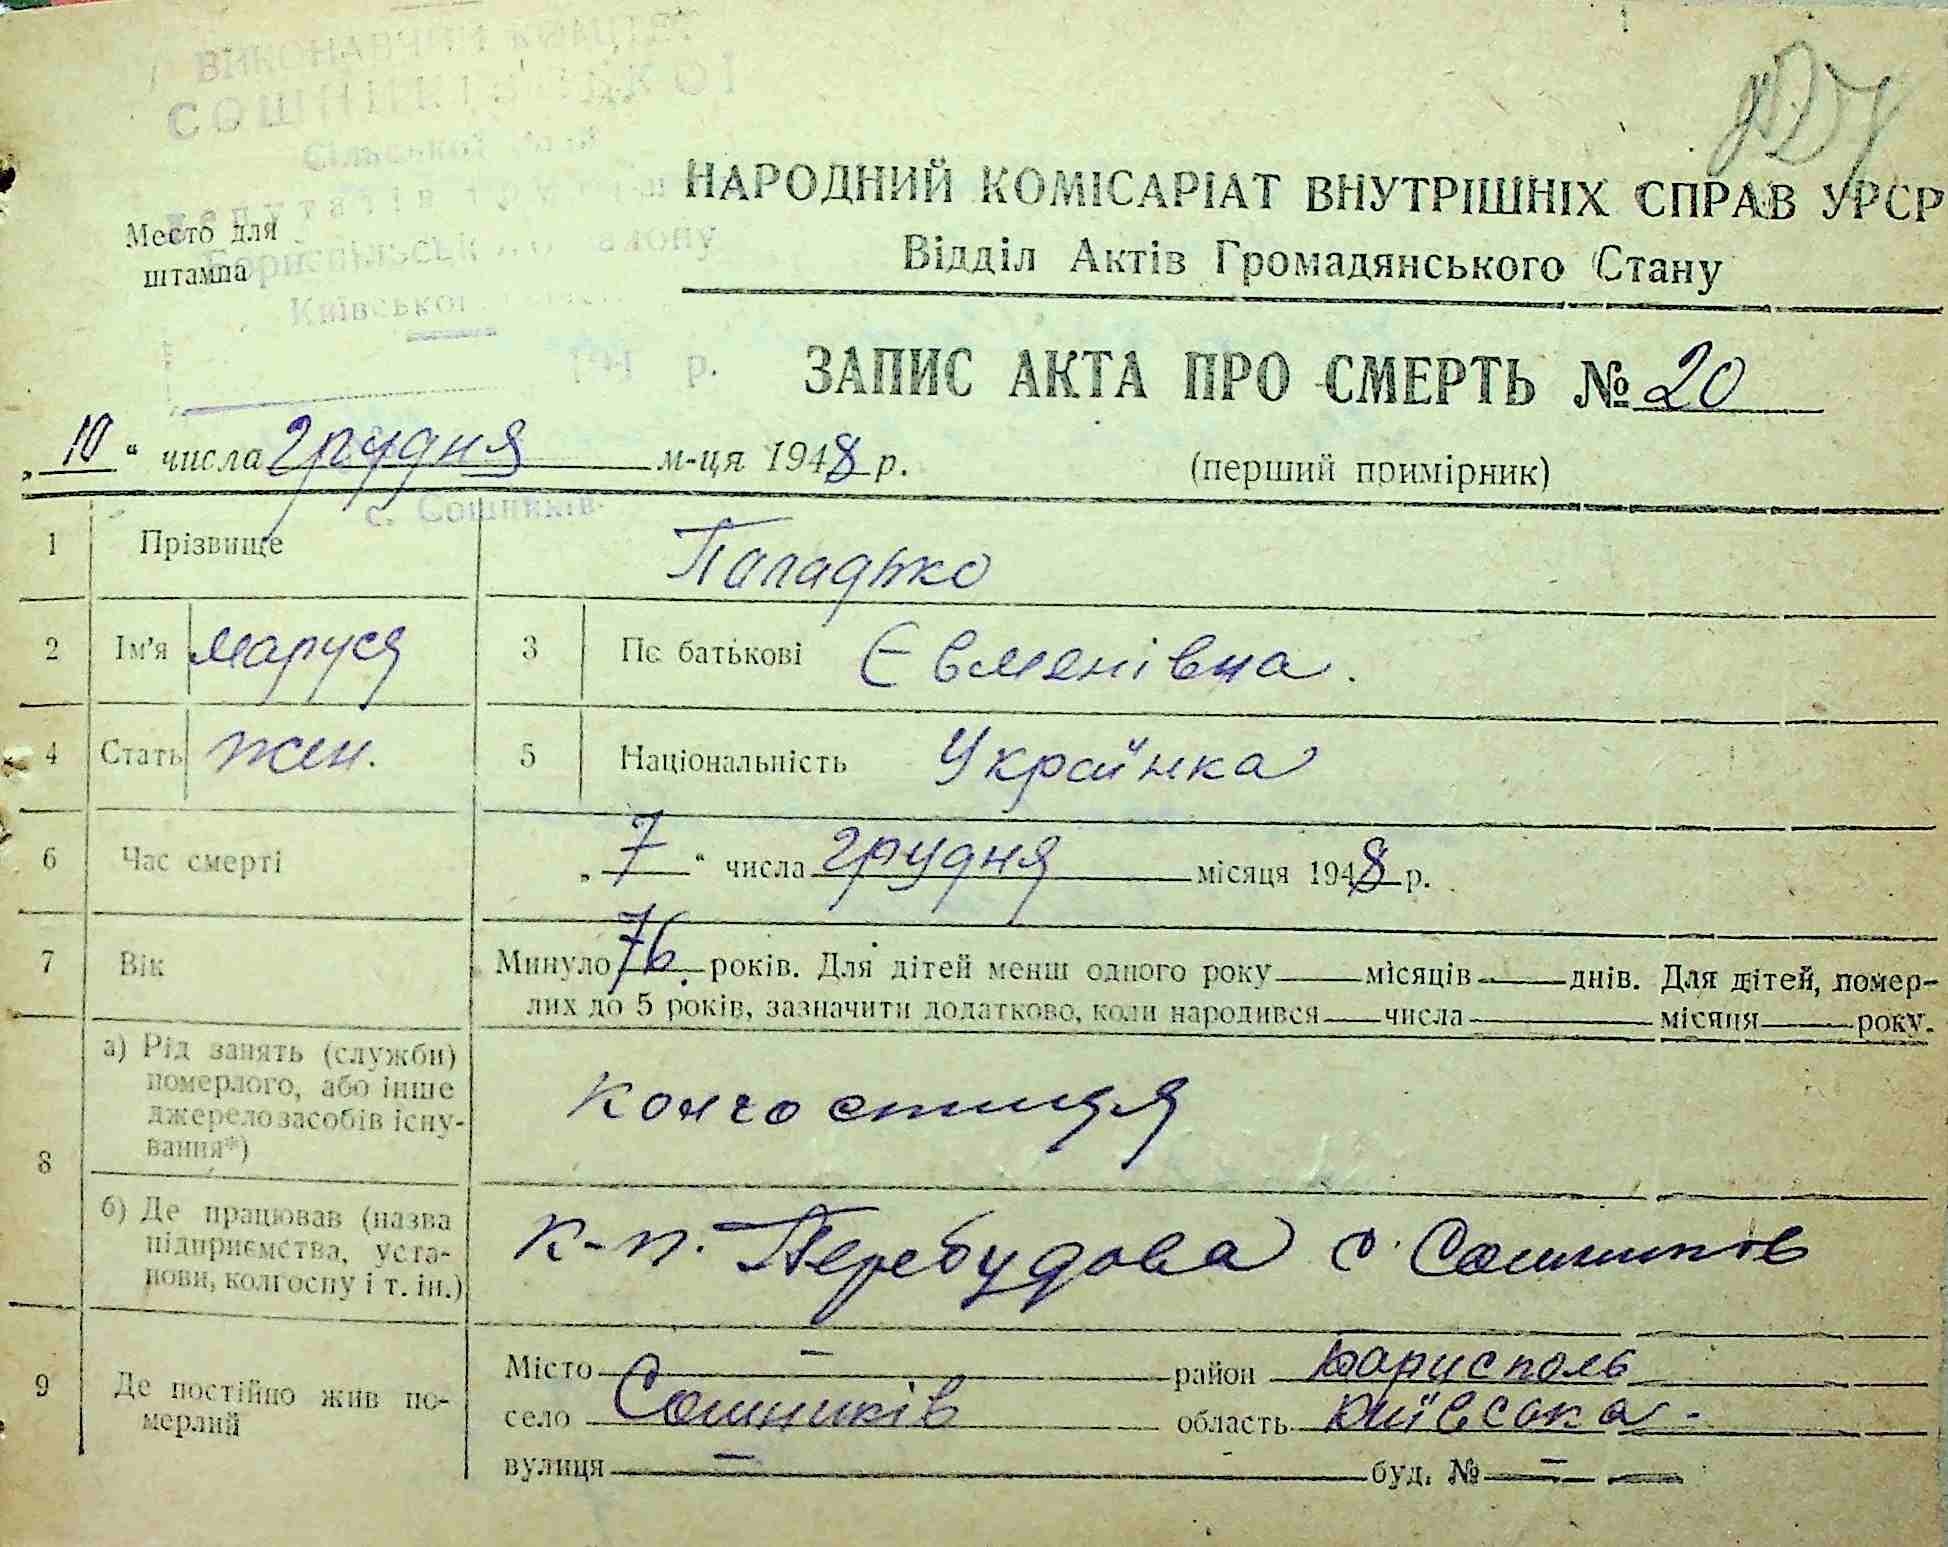 ВИКОНАВЧИЙ КОМІТЕТ
СОШНИКІВСЬКОЇ
Сільської Ради
депутатів
Бориспільського району
Київської
194 р.
с. Сошників
Место для
штампа
НАРОДНИЙ КОМІСАРІАТ ВНУТРІШНІХ СПРАВ УРСР
Відділ Актів Громадянського Стану
ЗАПИС АКТА ПРО СМЕРТЬ № 20
„10“ числа грудня м-ця 1948 р. (перший примірник)
1 Прізвище Паладько
2 Ім'я Маруся 3 По батькові Євменівна.
4 Стать жен. 5 Національність Українка
6 Час смерті „7“ числа грудня місяця 1948 р.
7 Вік Минуло 76 років. Для дітей менш одного року місяців днів. Для дітей, помер-
лих до 5 років, зазначити додатково, коли народився числа місяця року.
8 а) Рід занять (служби)
померлого, або інше
джерело засобів існу-
вання*)
колгостниця
б) Де працював (назва
підприємства, уста-
нови, колгоспу і т. ін.)
к-п. Перебудова с. Сошников
9 Де постійно жив по-
мерлий
Місто — район Бориспол
село Сошників область Київська -
вулиця — буд. № —